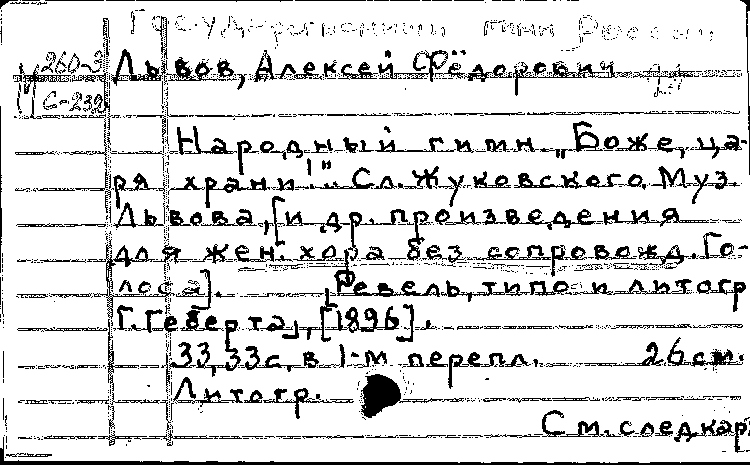 Государственный гимн России
М 260-3 Львов, Алексей Фёдорович
С-232
Народный гимн „Боже, ца-
ря храни!". Сл. Жуковского. Муз.
Львова, [и др. произведения
для жен. хора без сопровожд. Го-
лоса]. [Ревель, типо и литогр
Г. Геберта], [1896].
33, 33 с. в 1-м перепл. 26 см.
Литогр.
См. след кар